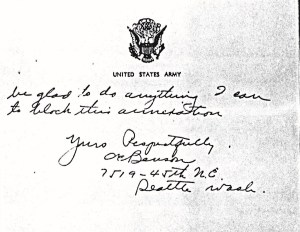 UNITED STATES ARMY
be glad to do anything I can
to block this annexation
Yours Respectfully.
O.C. Benson
7519-45th N.E.
Seattle Wash.